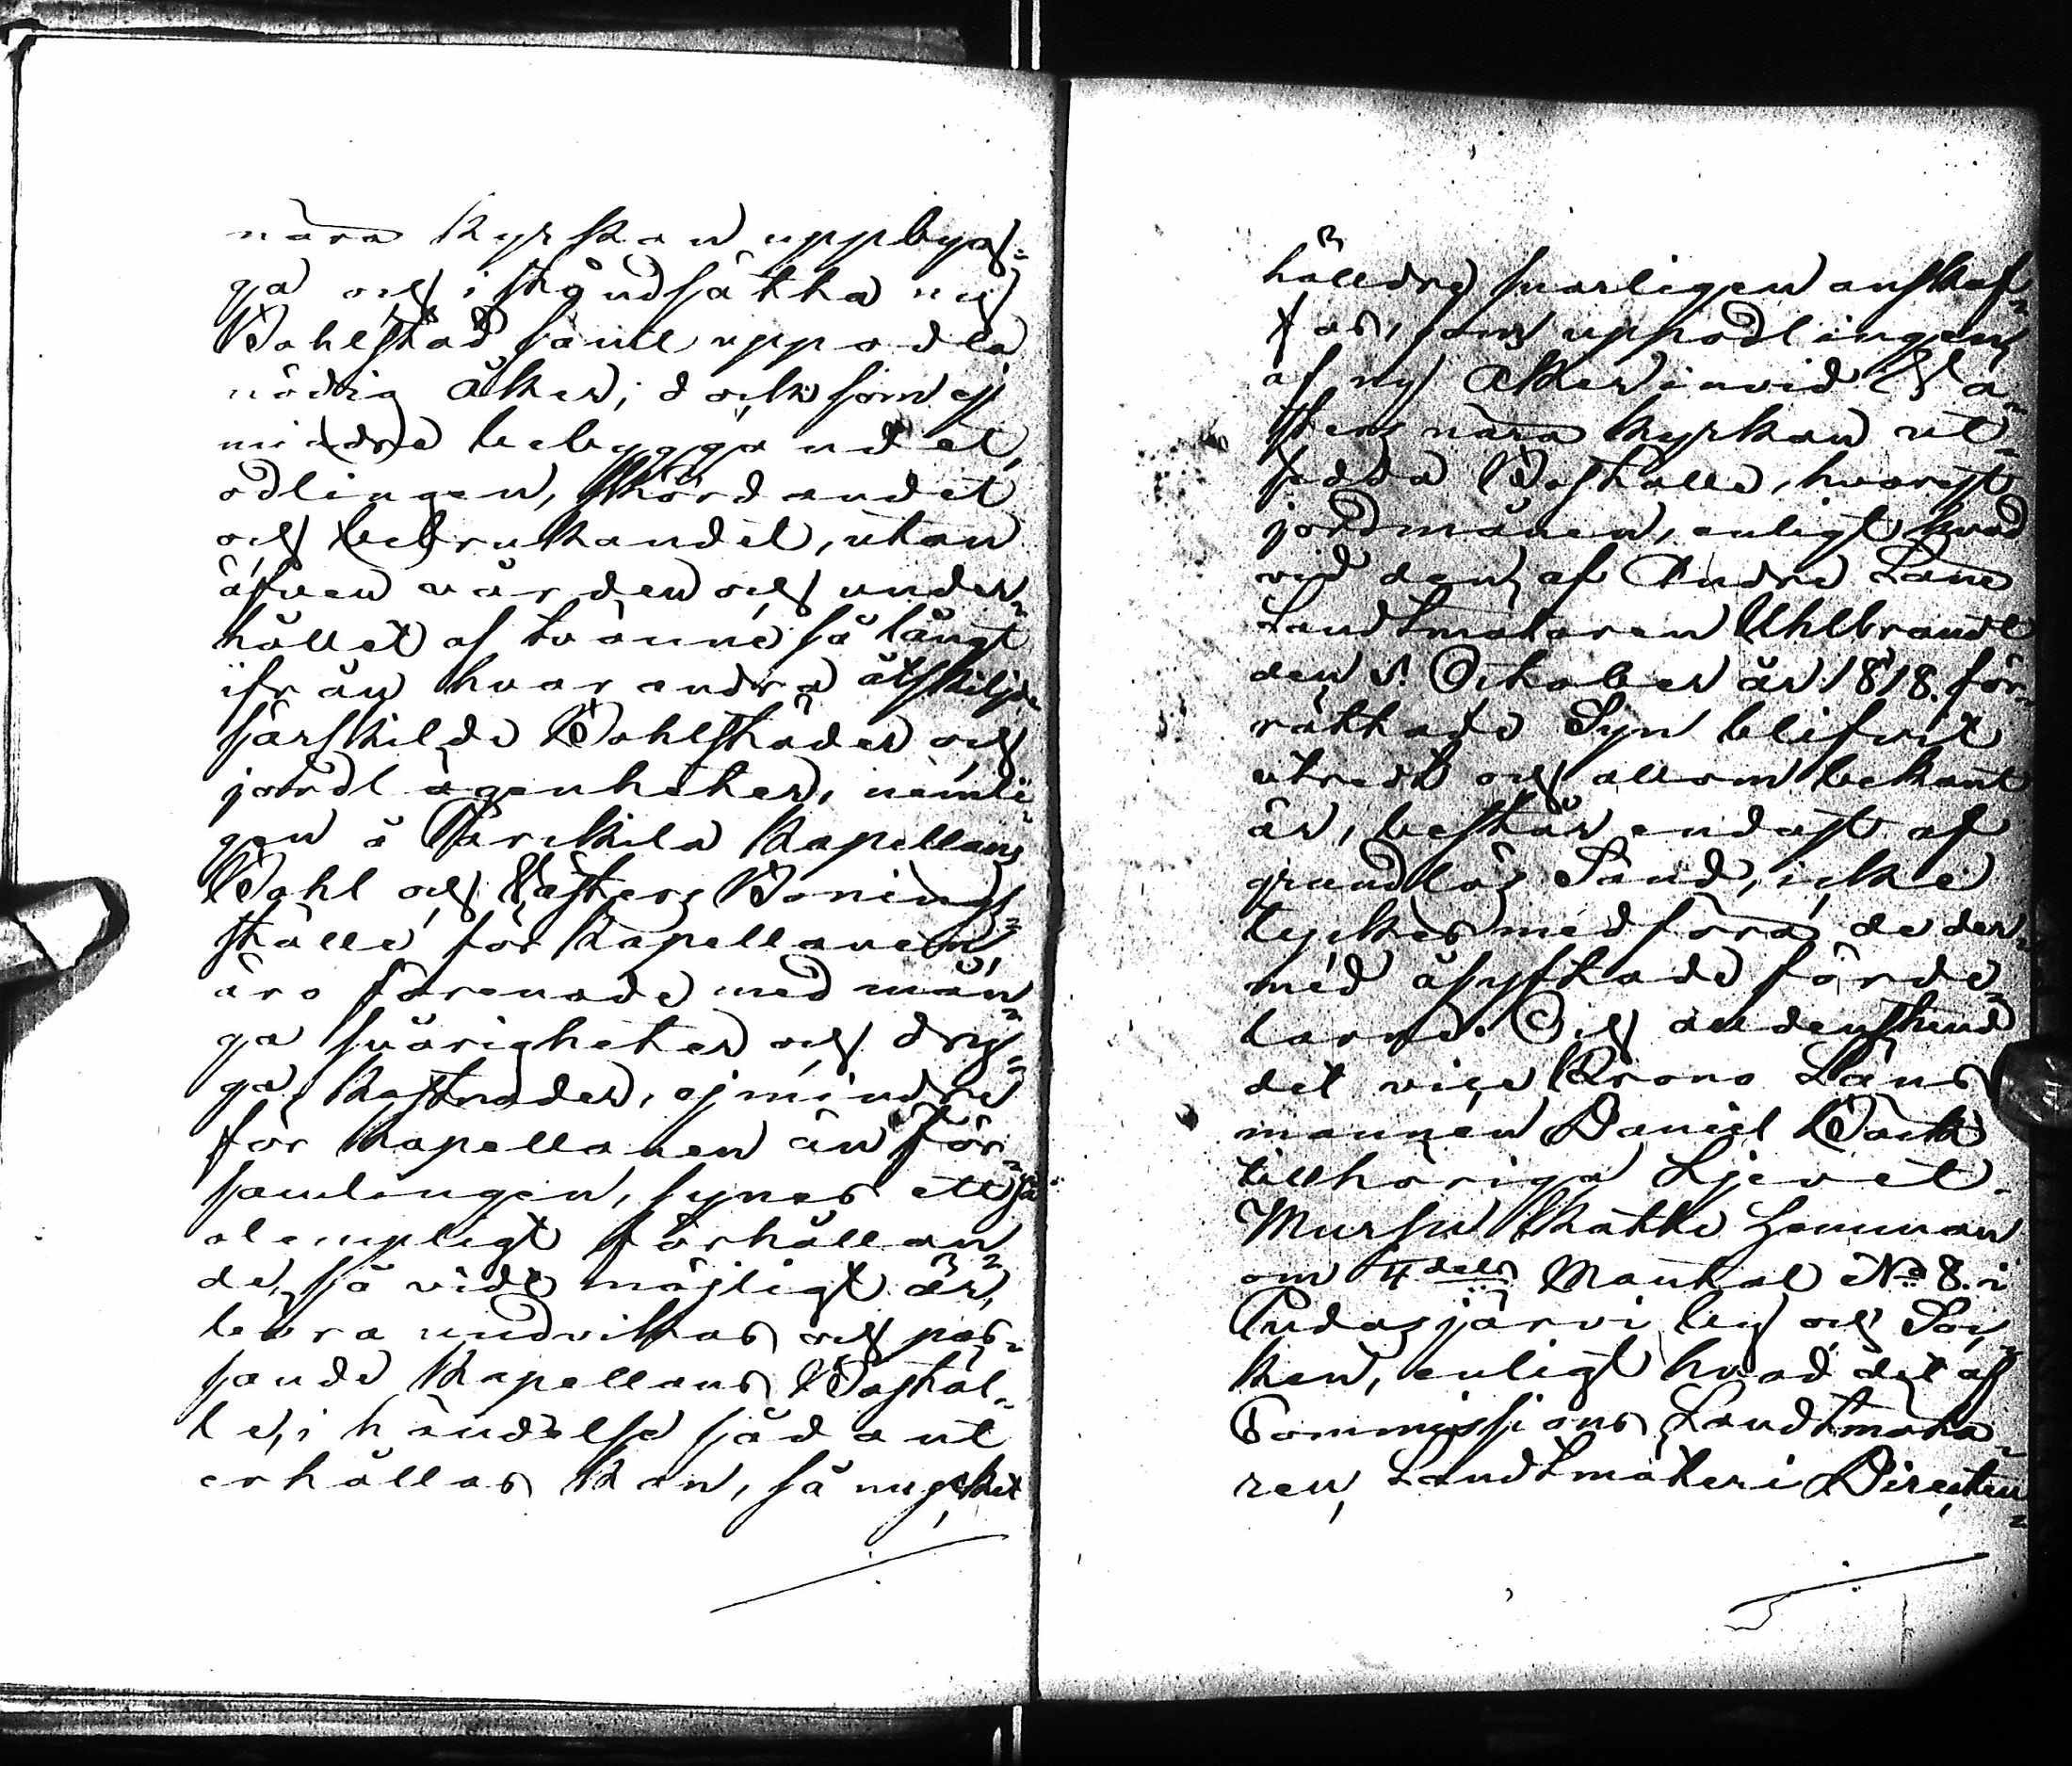 nära kyrkan uppbyg=
ga och i ståndsätta ny
Bohlstad samt uppodla
nödig åker; dock som ej
mindre bebyggandet,
odlingen, skördandet
och bebrukandet, utan
äfven vården och under=
hållet af tvänne så långt
ifrån hvarandra åtskiljda
särskilde Bohlstäder och
jordlägenheter, nemli=
gen å Kapellans
Bohl och Boning=
ställe för Kapellanen,
äro förenade med mån=
ga svårigheter och dry=
ga kostnader, ej mindre
för Kapellanen än För=
samlingen, synes ett så
olempligt förhållan=
de, så vidt möjligt är,
böra undvikas och pas=
sande Kapellans Bostäl=
le, i händelse sådant
erhållas kan, så mycket
hälldre snarligen anskaf=
fas, som uppodlingen
af ny åker invid
nära kyrkan ut=
sedda Boställe, hvarest
jordmånen, enligt hvad
vid den af Andre Lant
Landtmätaren Uhlbrandt
den 5. October år 1818. för=
rättade Syn blifvit
utredt och allom bekant
är, består endast af
grundlös Sand, icke
tyckes medföra de der=
med åsyftade förde=
larne. Och alldenstund
det vice Krono Läns
mannen Daniel Bäck
tillhöriga
Mursu Skatte Hemman
om 4 dels Mantal No 8. i
Pudasjärvi by och Soc=
ken, enligt hvad det af
Commissions Landtmäta=
ren, Landtmäteri Directeu=